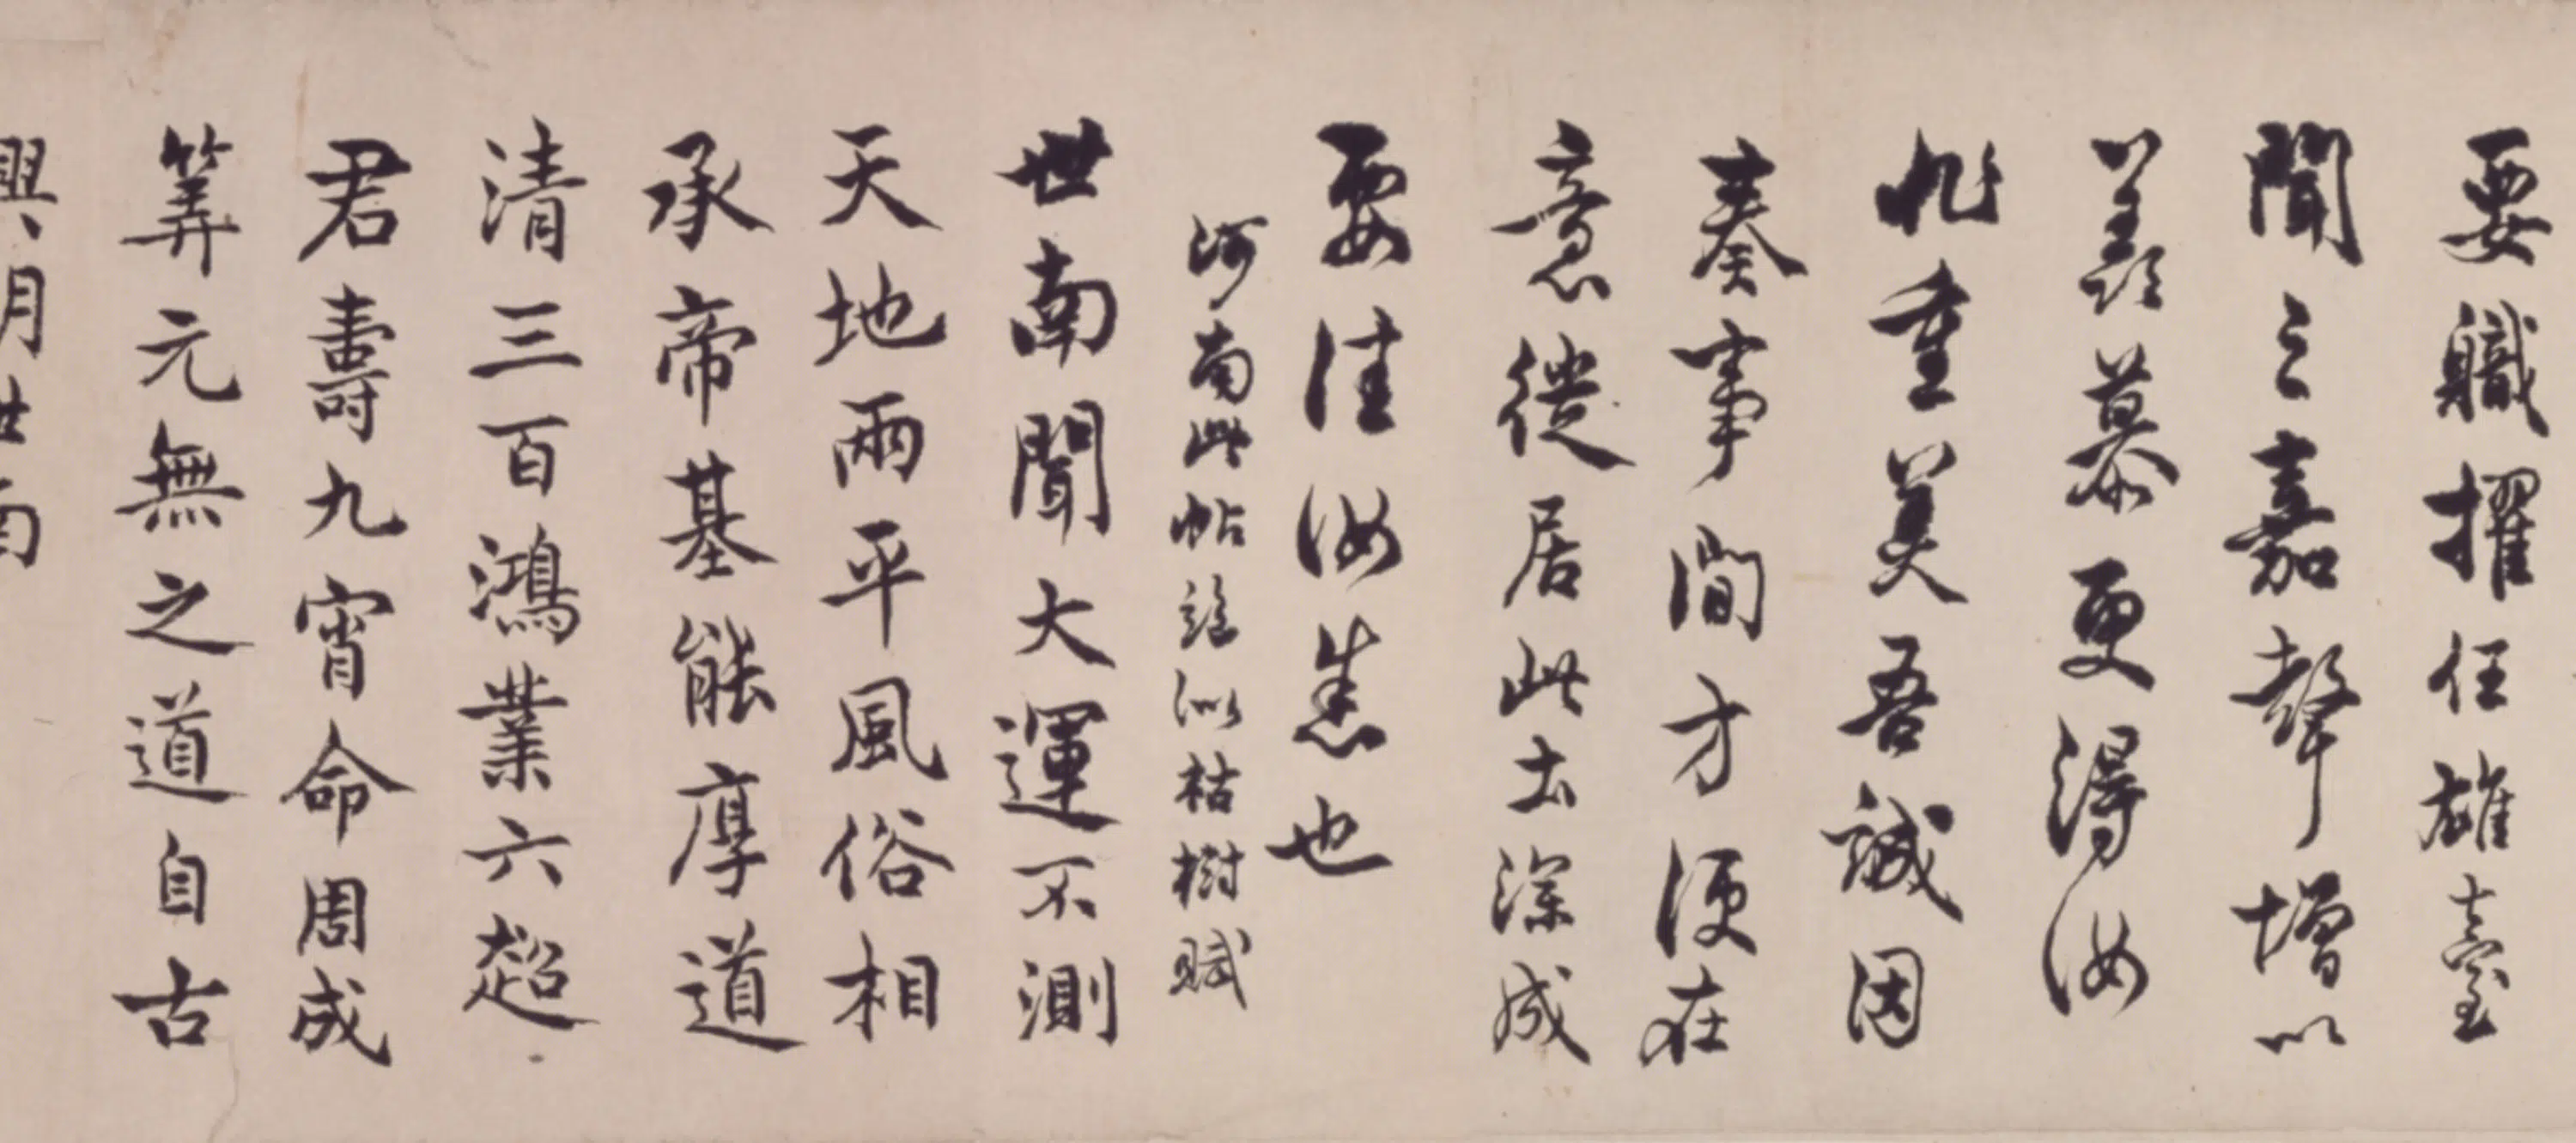 要職擢任雄臺
聞之嘉聲增以
羨慕更得汝
兆重美吾誠因
奏事間方便在
意從居此土深成
要佳汝悉也
河南此帖詮似枯樹賦
世南聞大運不測
天地兩平風俗相
承帝基能厚道
清三百鴻業六超
君壽九霄命周成
筭元無之道自古
興明世南